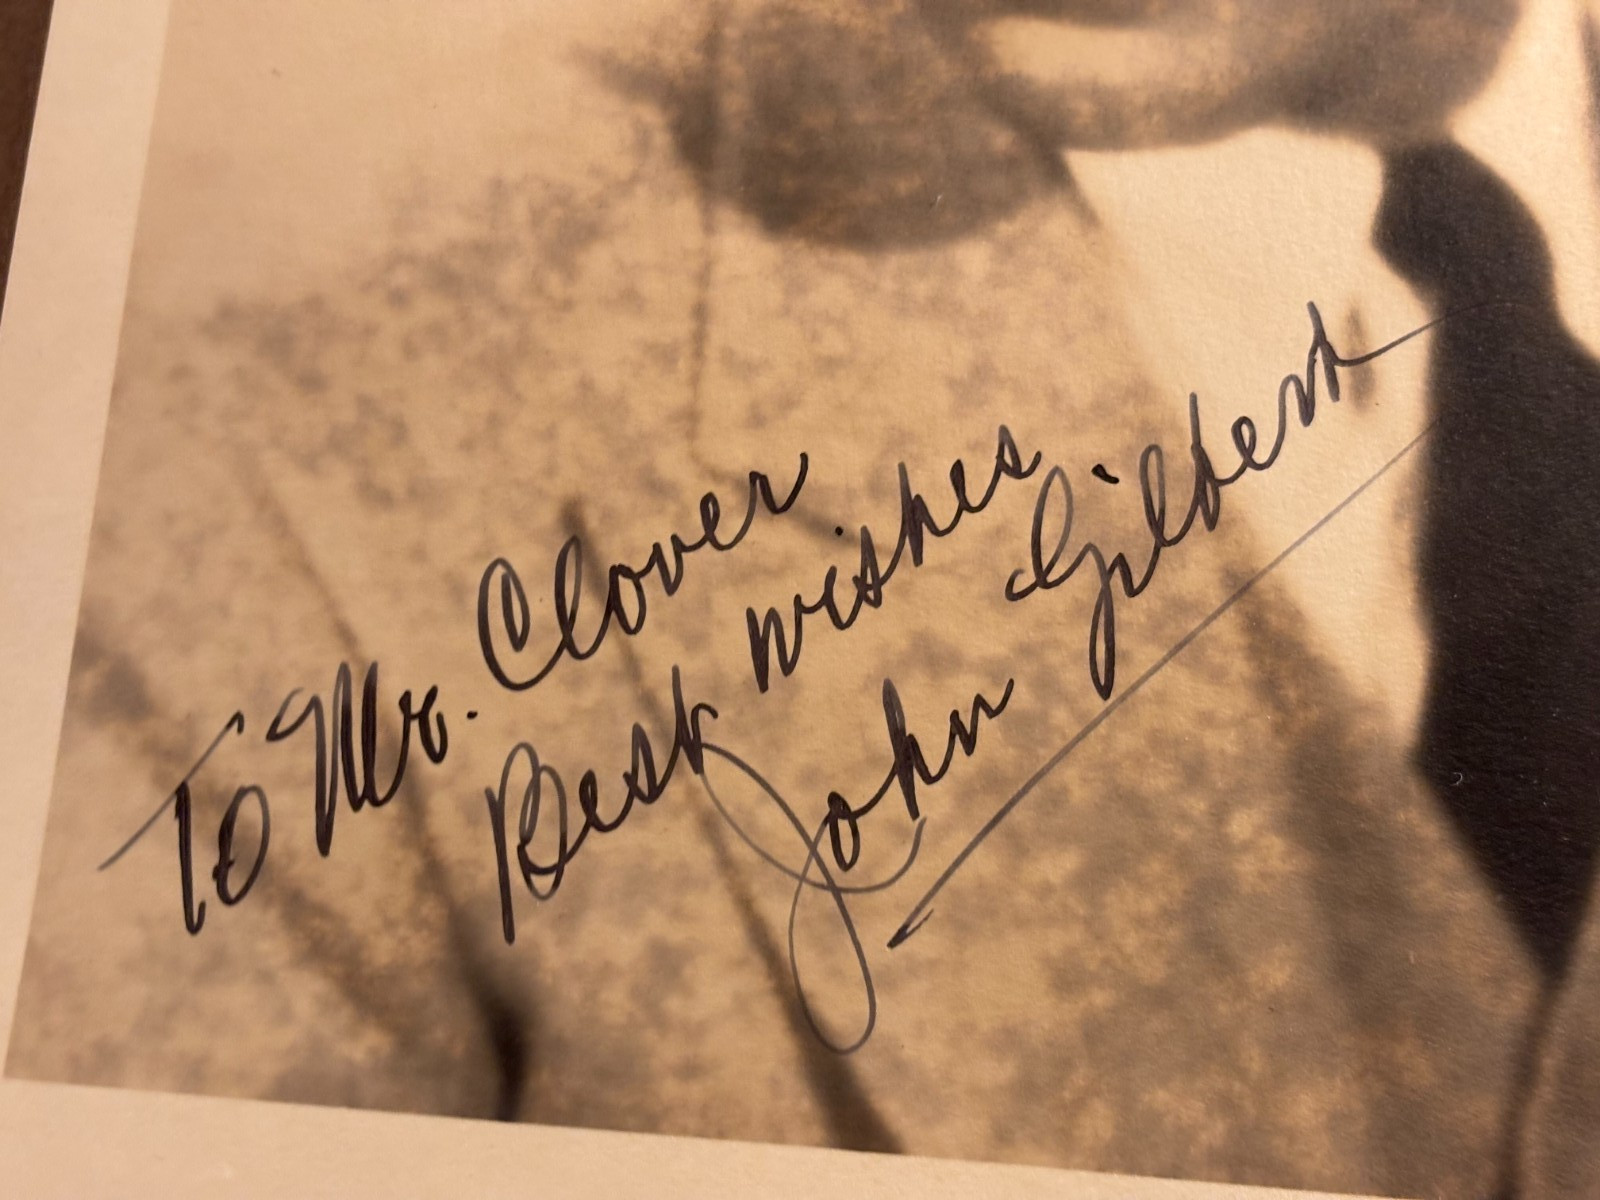 To Mr. Clover
Best wishes
John Gilbert